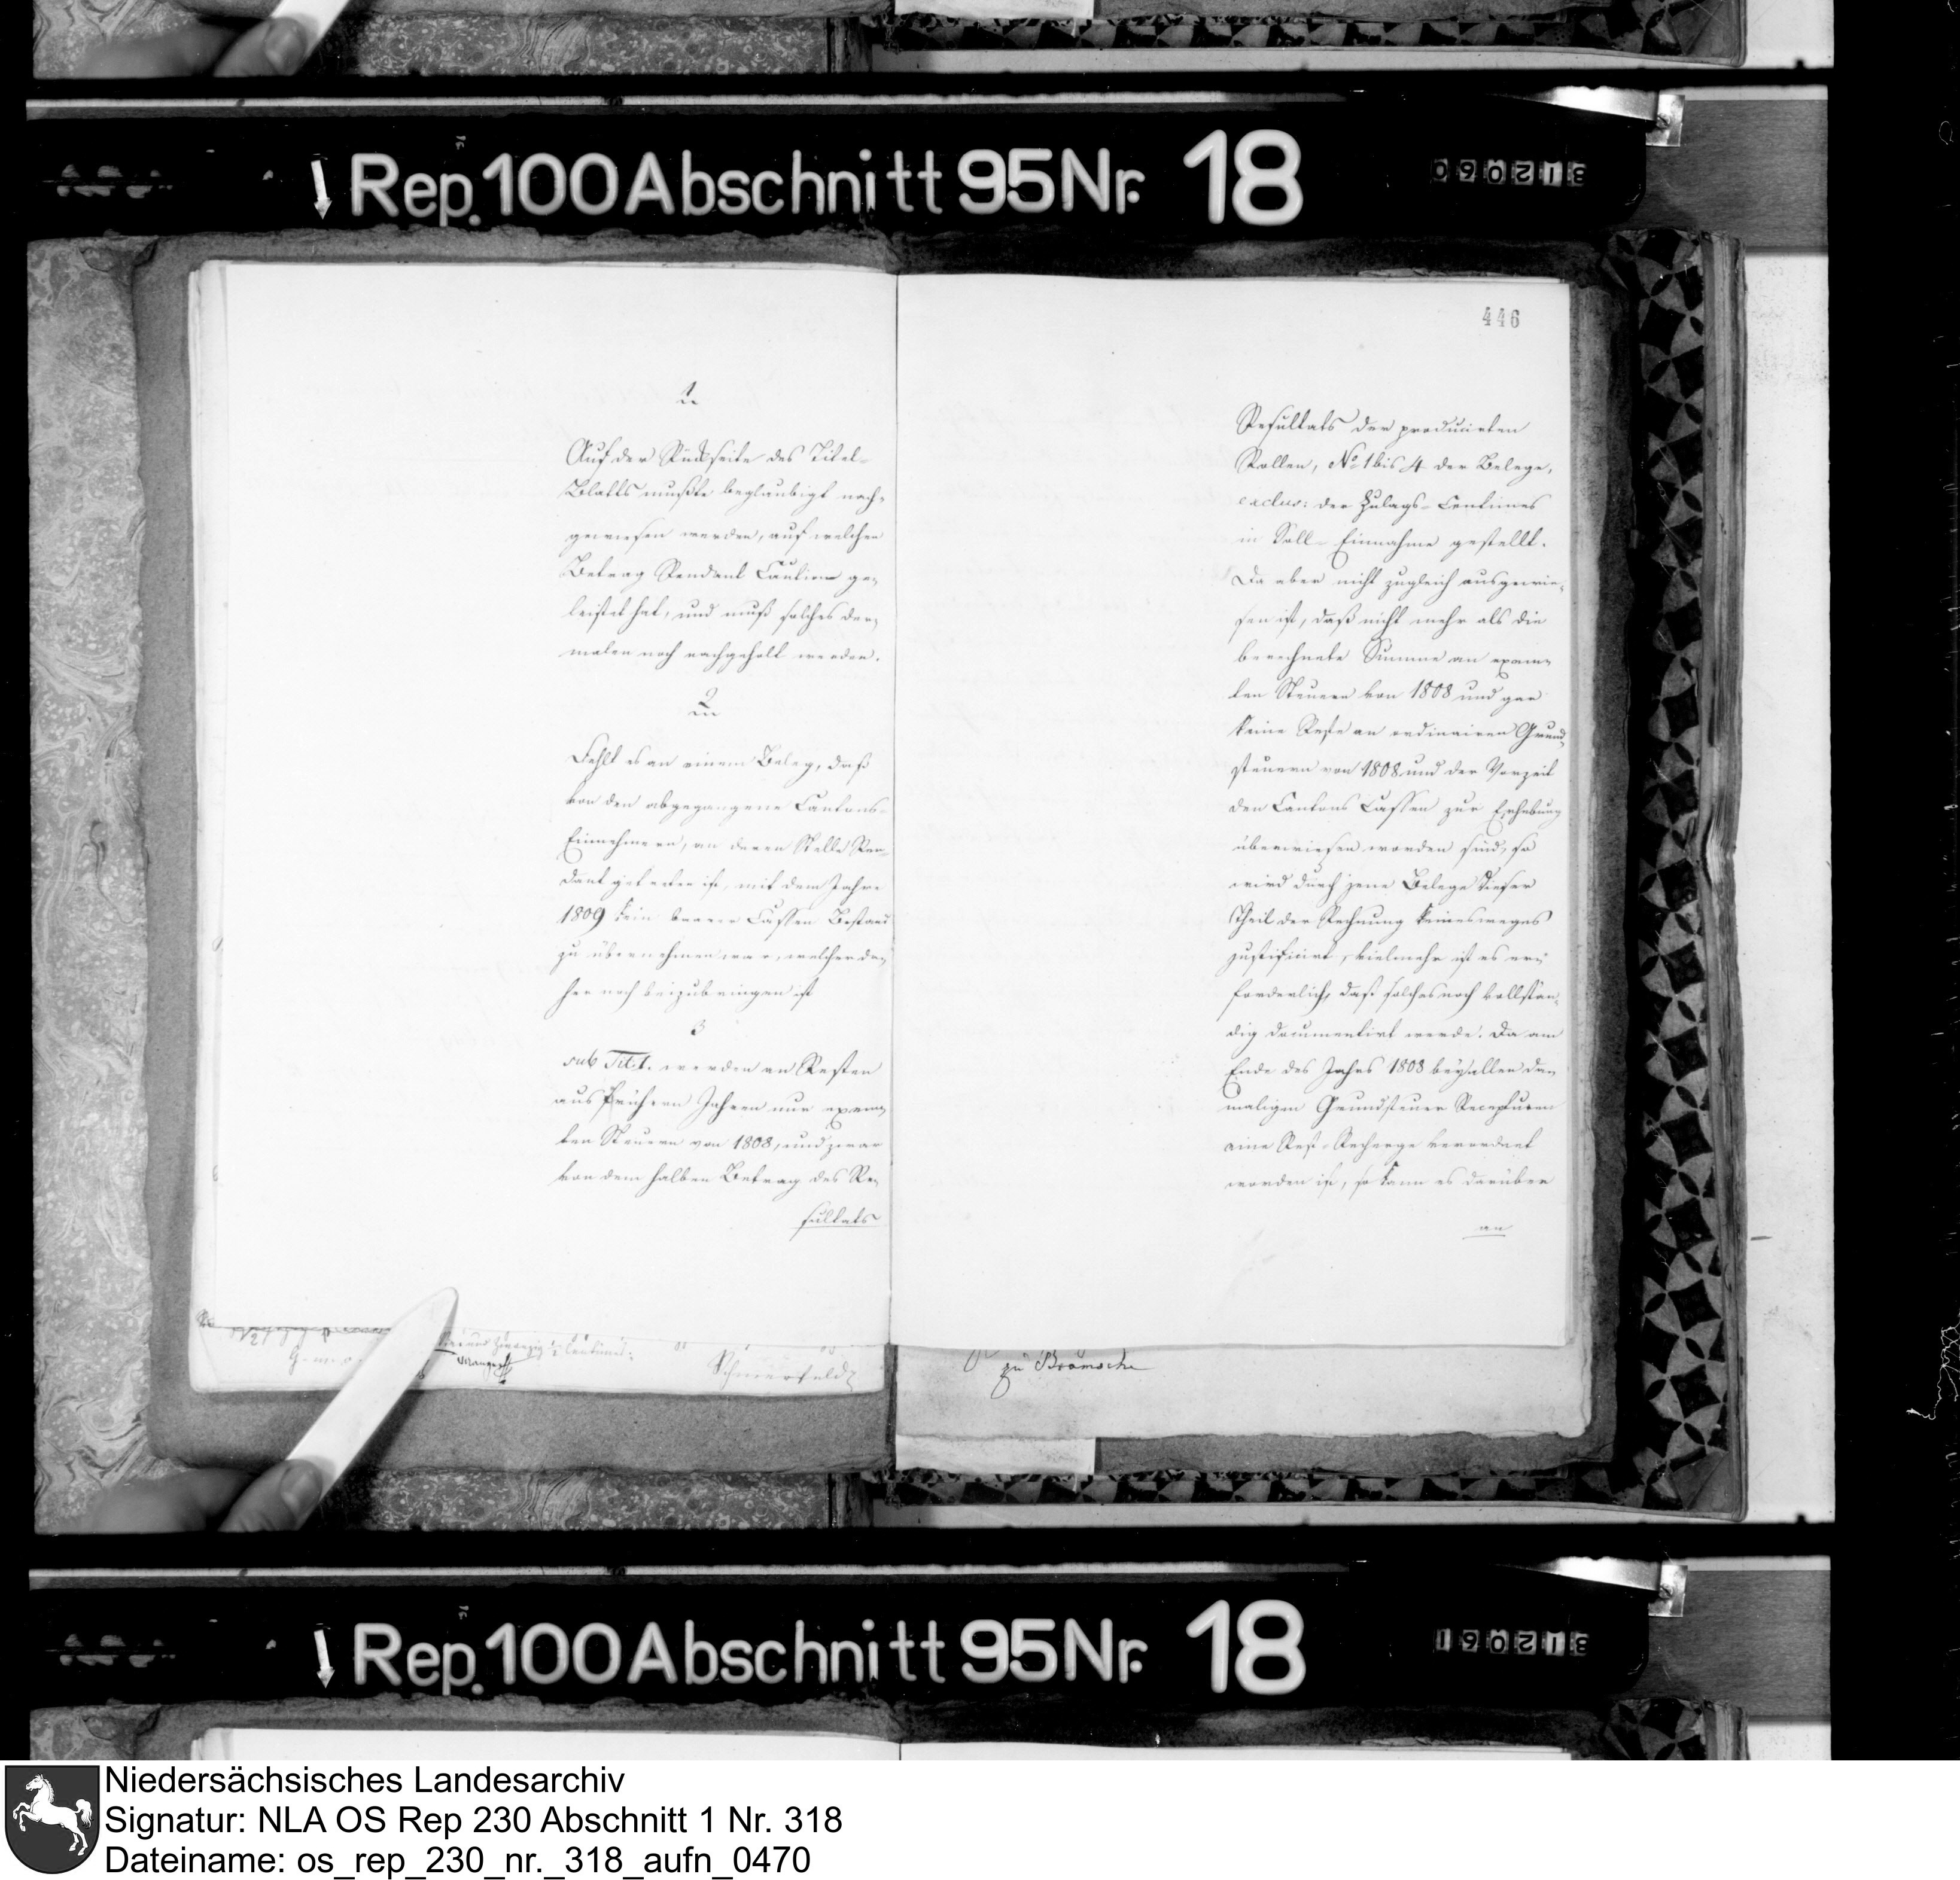 Rep. 100 Abschnitt 95 Nr. 18
312060
1.
Auf der Rückseite des Titel-
Blatts mußte beglaubigt nach-
gewiesen werden, auf welchen
Betrag Rendant Caution ge-
leistet hat, und muß solches der-
malen noch nachgeholt werden.
2
Fehlt es an einem Beleg, daß
von den abgegangene Cantons-
Einnehmern, an deren Stelle Ren-
dant getreten ist, mit dem Jahre
1809 kein baarer Cassen Bestand
zu übernehmen war, welcher da-
her noch beizubringen ist
3
sub Tit. 1. werden an Resten
aus frühern Jahren nur exem-
ten Steuern von 1808, und zwar
von dem halben Betrag des Re-
sultats
446
Resultats der producirten
Rollen, No 1 bis 4 der Belege,
exclus: der Zulags-Centimes
in Soll-Einnahme gestellt.
Da aber nicht zugleich ausgewie-
sen ist, daß nicht mehr als die
berechnete Summe an exem-
ten Steuern von 1808 und gar
keine Reste an ordinairen Grund-
steuern von 1808 und der Vorzeit
den Cantons Cassen zur Erhebung
überwiesen worden sind, so
wird durch jene Belege dieser
Theil der Rechnung keinesweges
justificirt, vielmehr ist es er-
forderlich, daß solches noch vollstän-
dig documentirt werde. Da am
Ende des Jahrs 1808 bey allen da-
maligen Grundsteuer Recepturen
eine Rest-Recherge verordnet
worden ist, so kann es darüber
an
und zwanzig Centimes:
zu Bramsche
Rep. 100 Abschnitt 95 Nr. 18
312061
Niedersächsisches Landesarchiv
Signatur: NLA OS Rep 230 Abschnitt 1 Nr. 318
Dateiname: os_rep_230_nr._318_aufn_0470